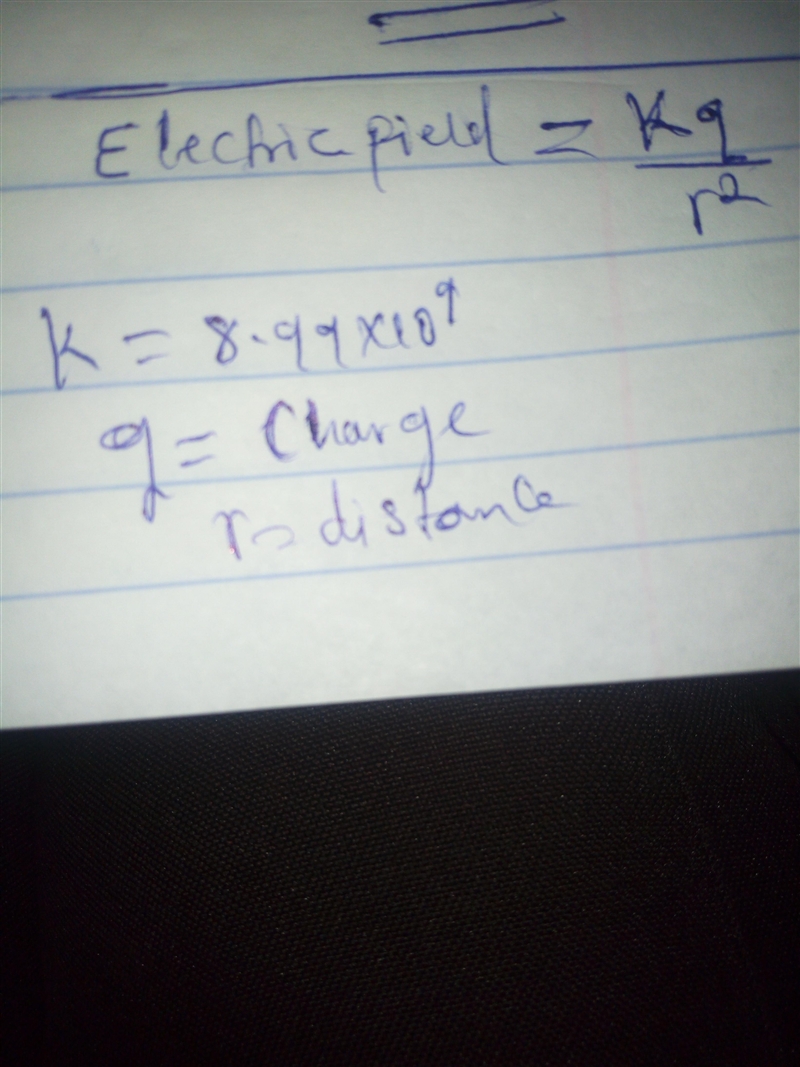 Electric field = Kq/r²
K = 8.99x10⁹
q = Charge
r = distance